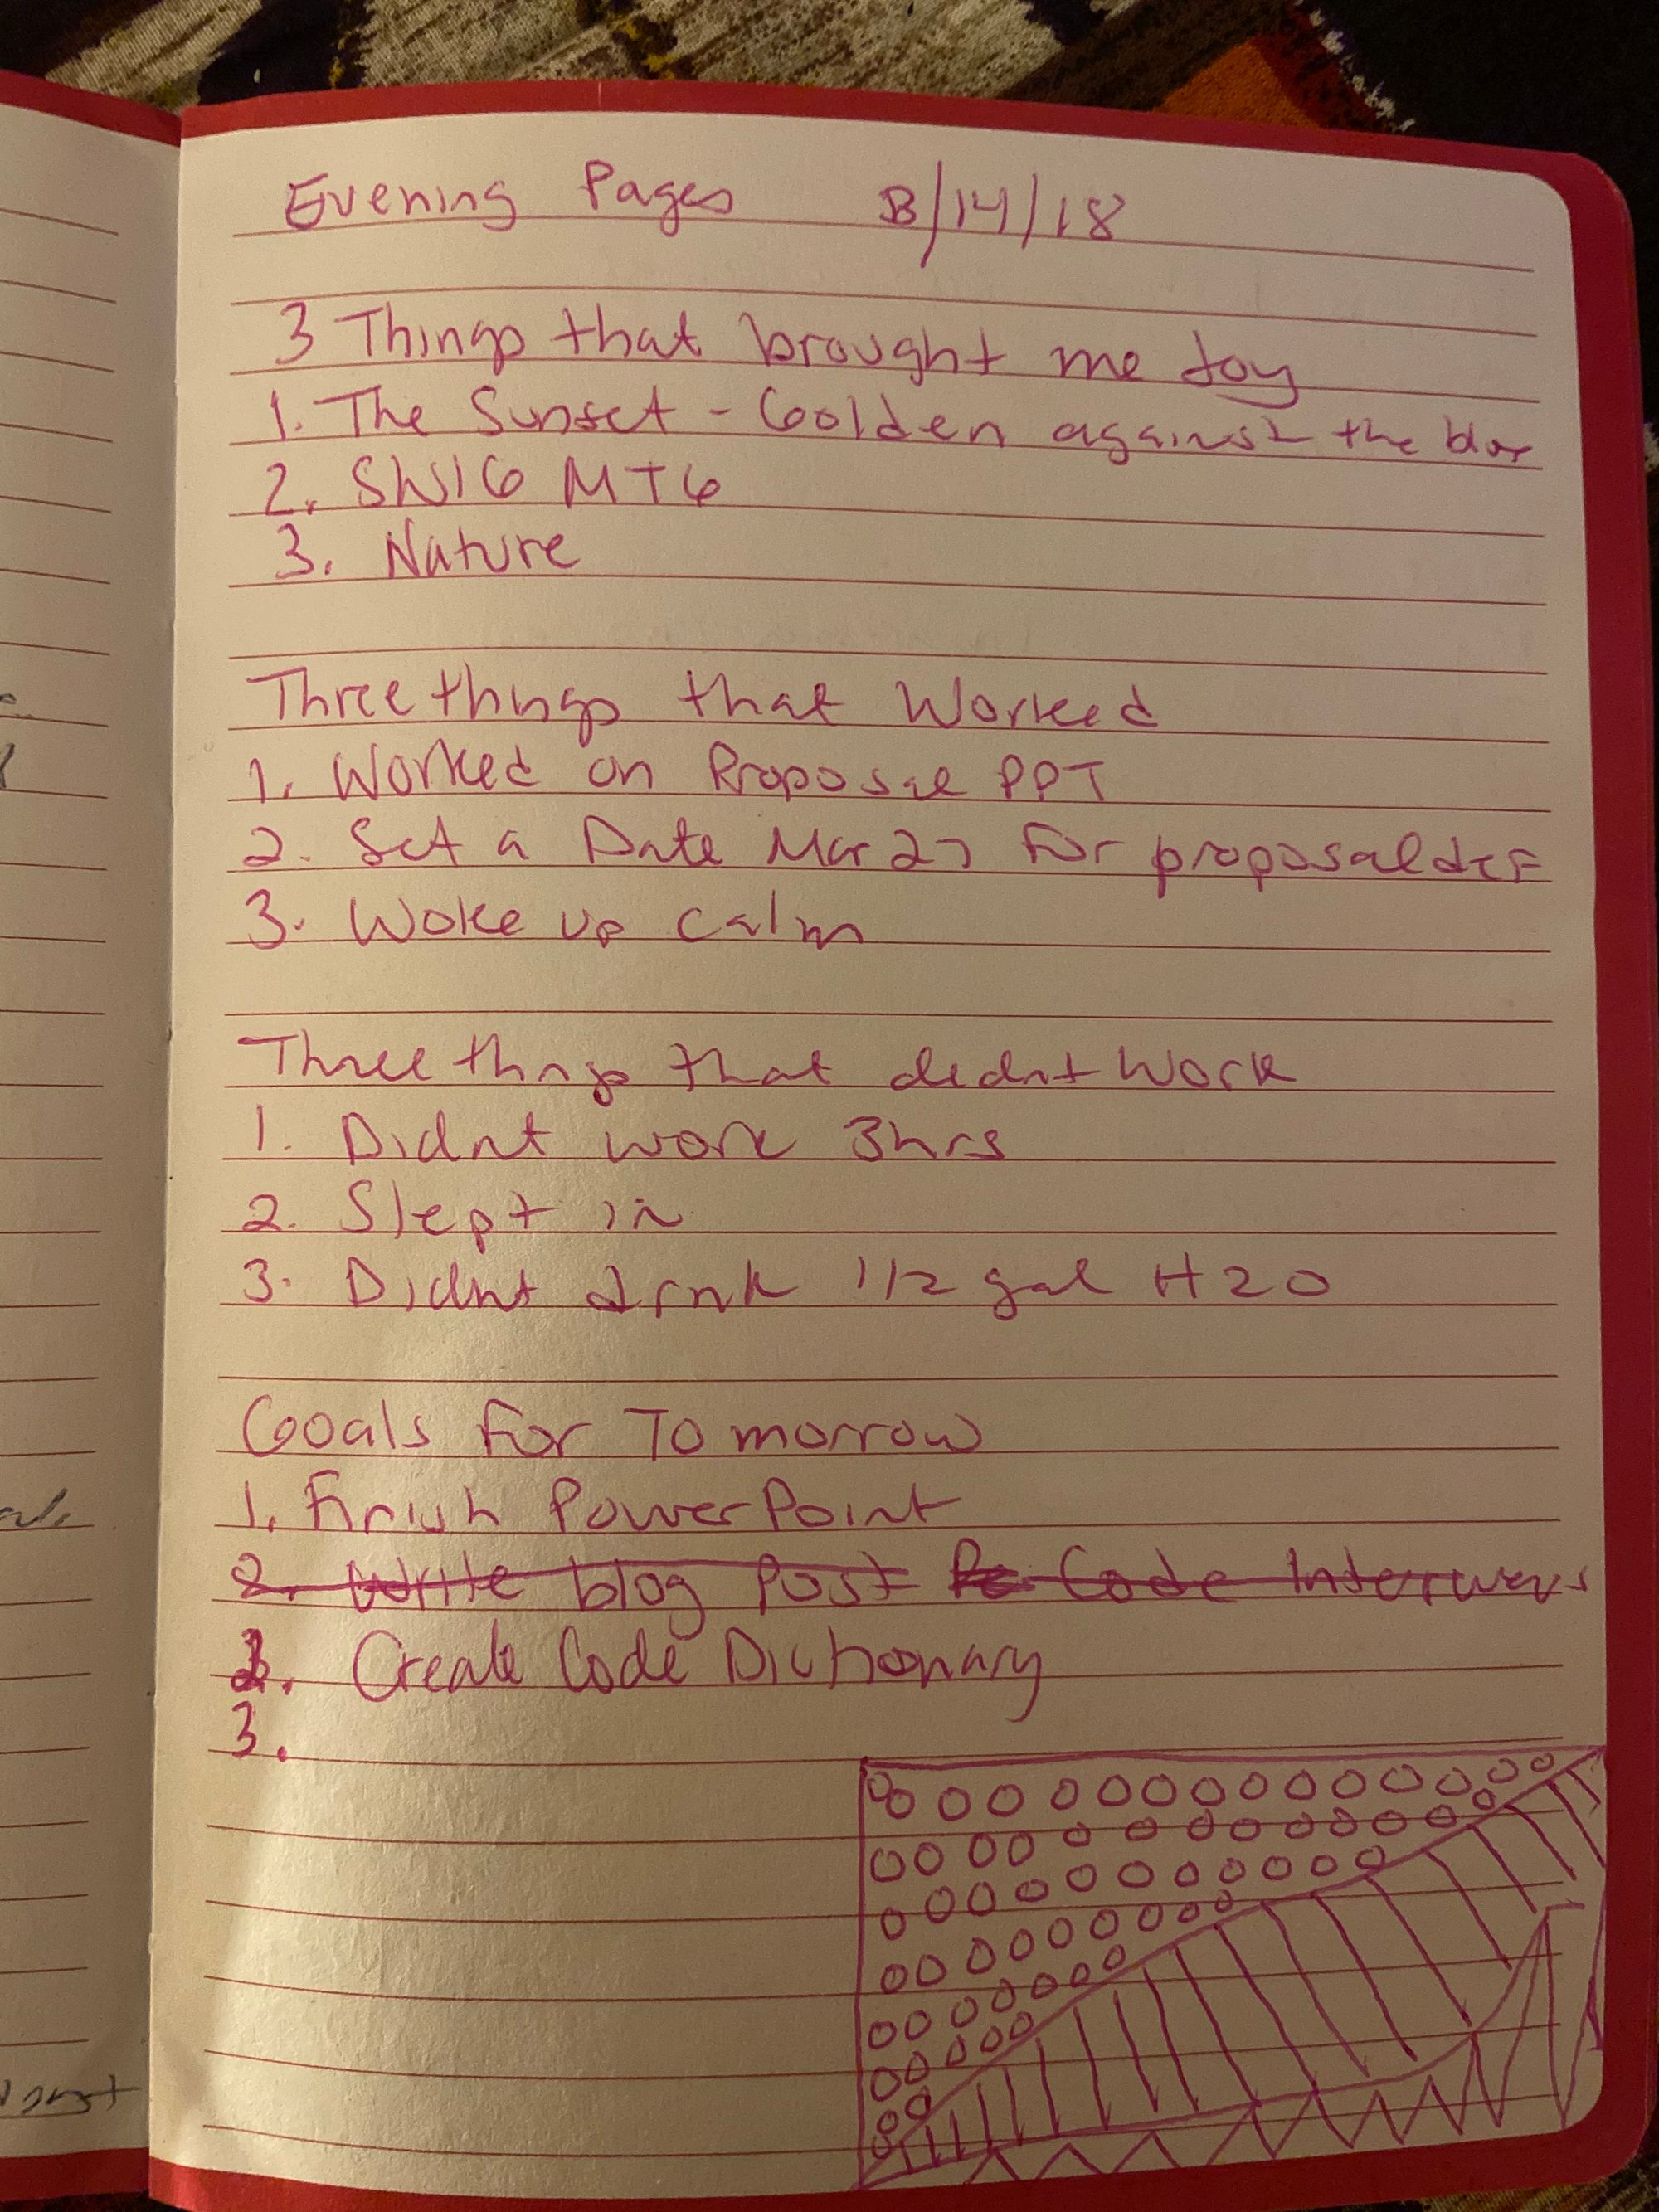 Evening Pages 3/14/18
3 Things that brought me Joy
1. The Sunset - Golden against the blue
2. SW16 MTG
3. Nature
Three things that Worked
1. Worked on Proposal PPT
2. Set a Date Mar 27 for proposal def
3. Woke up calm
Three things that didnt Work
1. Didnt work 3hrs
2. Slept in
3. Didnt drink 1/2 gal H20
Goals for Tomorrow
1. Finish PowerPoint
2. Write blog Post Code Interviews
2. Create Code Dictionary
3.